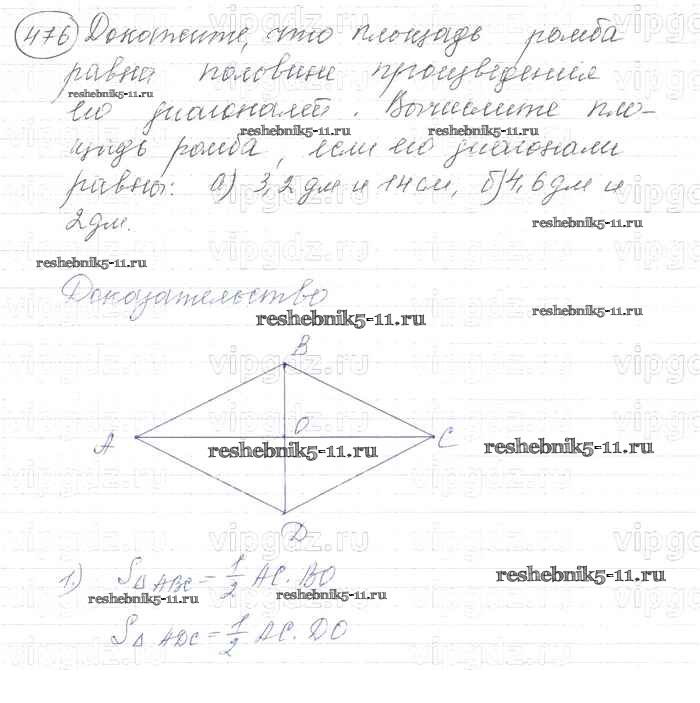 476 Докажите, что площадь ромба
равна половине произведения
его диагоналей. Вычислите пло-
щадь ромба, если его диагонали
равны: а) 3,2 дм и 14 см, б) 4,6 дм и
2 дм.
Доказательство
B
A O C
D
1) S△ABC = 1/2 AC · BO
S△ADC = 1/2 AC · DO
reshebnik5-11.ru
reshebnik5-11.ru
reshebnik5-11.ru
reshebnik5-11.ru
reshebnik5-11.ru
reshebnik5-11.ru
reshebnik5-11.ru
reshebnik5-11.ru
reshebnik5-11.ru
reshebnik5-11.ru
reshebnik5-11.ru
reshebnik5-11.ru
vipgdz.ru